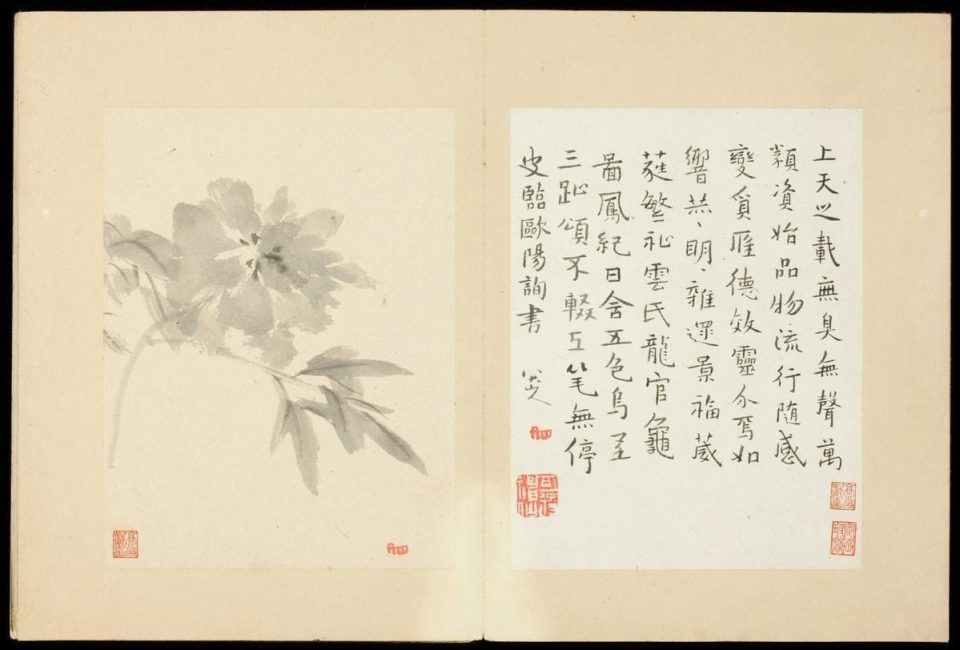 上天之載無臭無聲萬
類資始品物流行隨感
變質應德效靈介焉如
響赫〻明〻雜遝景福葳
蕤繁祉雲氏龍官龜
圖鳳紀日含五色烏呈
三趾頌不輟工筆無停
史臨歐陽詢書
八大